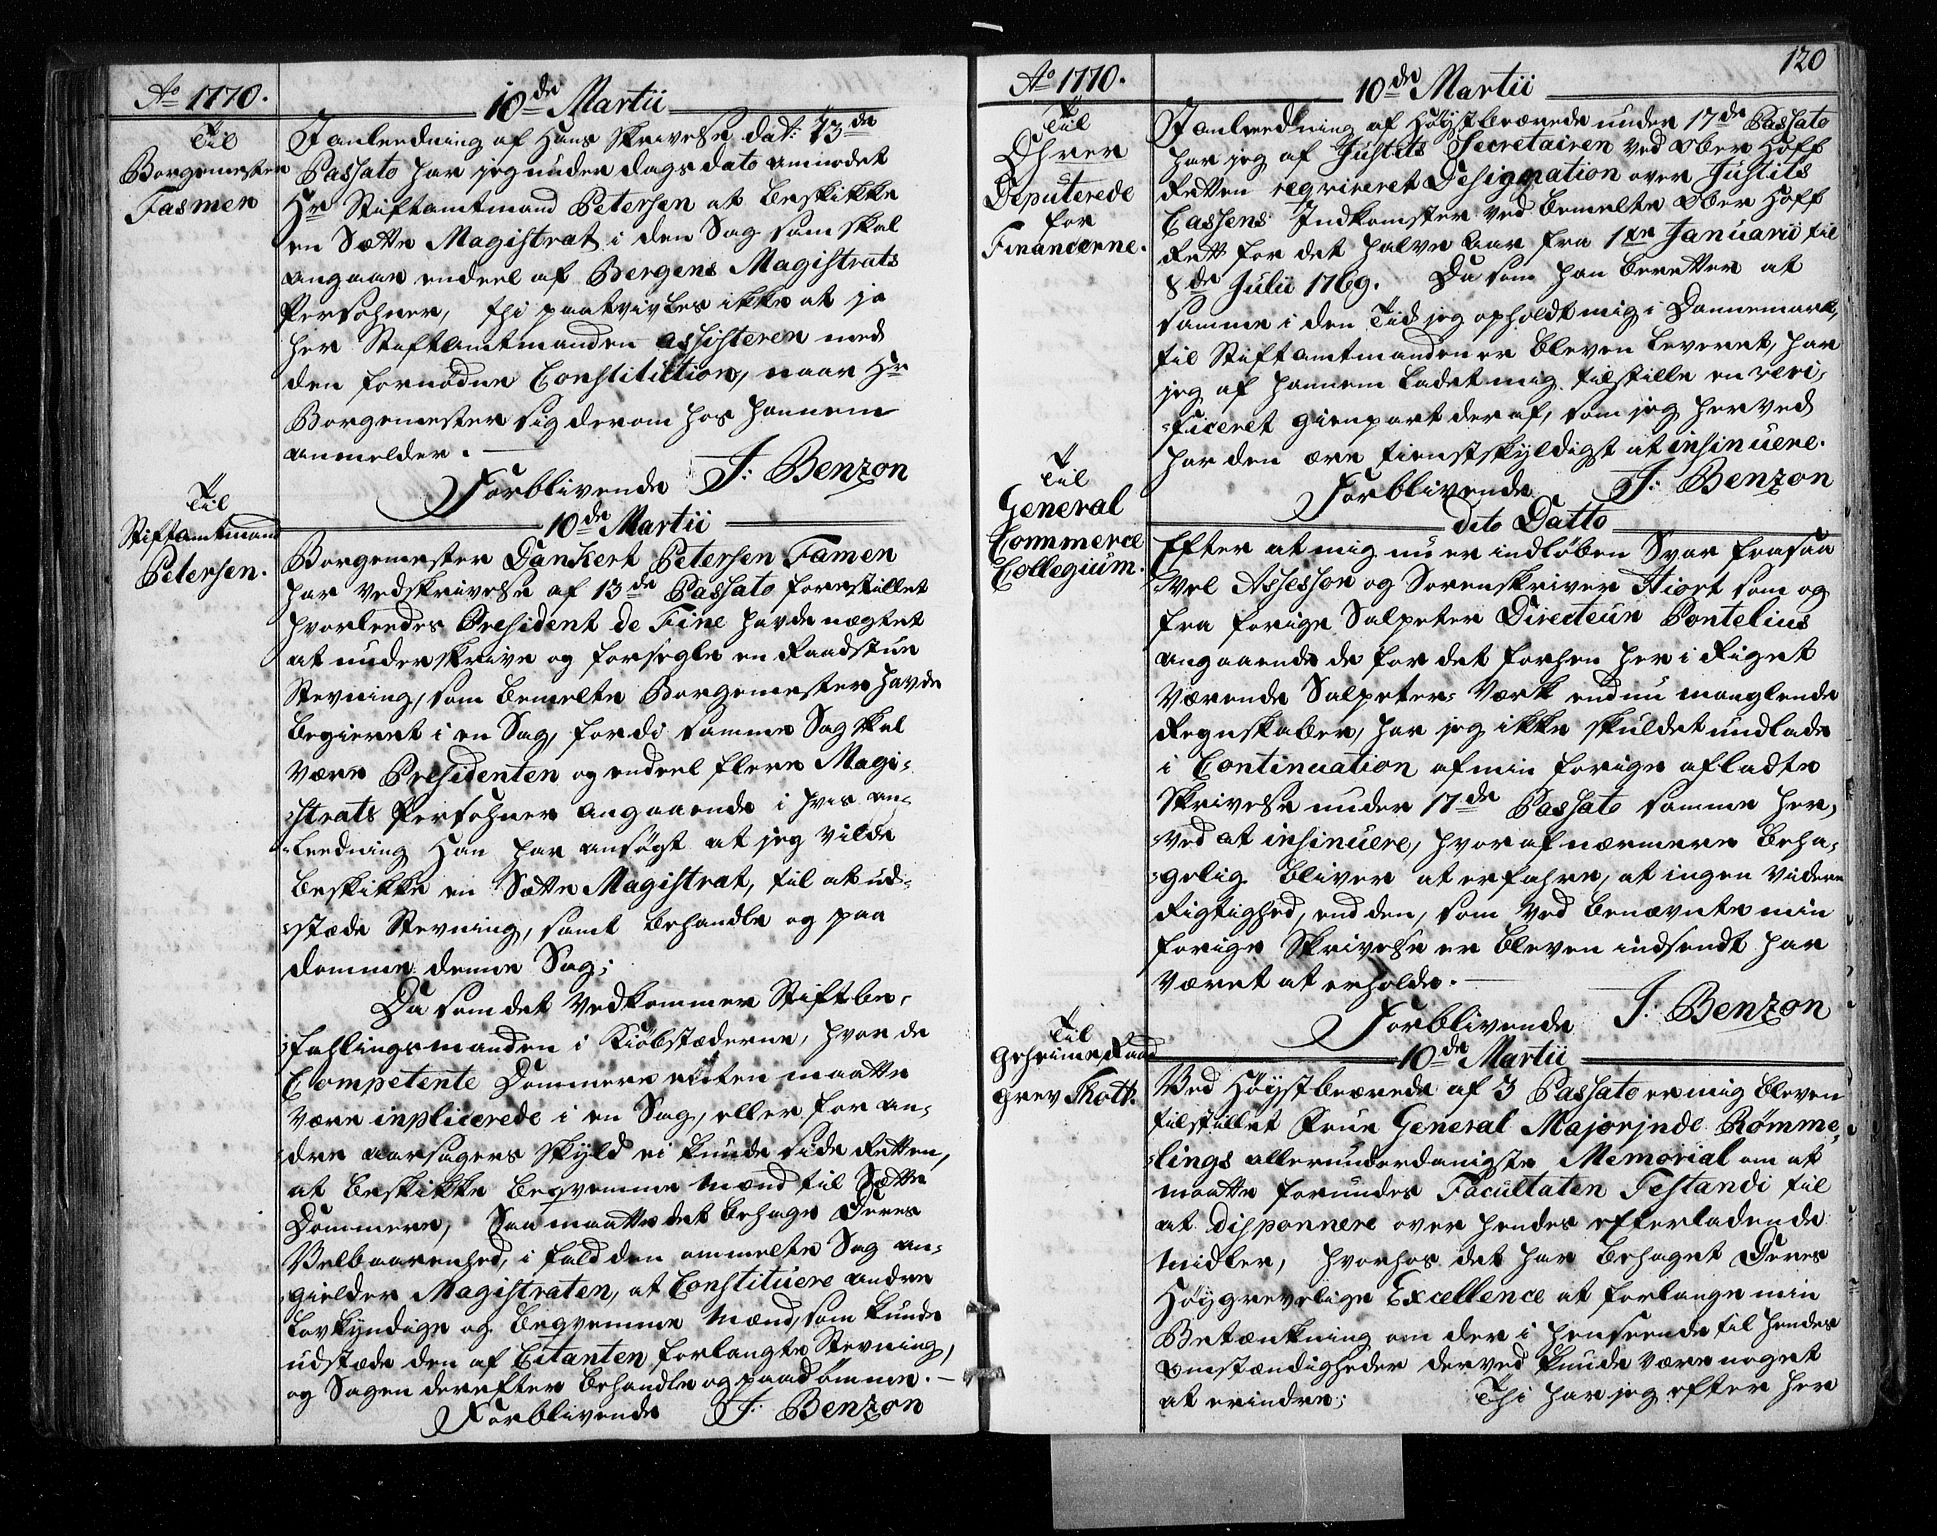 Ao 1770.
10de Martii
Til
Borgemester
Fasmer
I anleedning af Hans Skrivelse dat: 13de
Passato har jeg under dags dato anmodet
Hr Stiftamtmand Petersen at beskikke
en Sætte Magistrat i den Sag som skal
angaae endeel af Bergens Magistrats
Persohner, thi paatvivles ikke at jo
her Stiftamtmanden assisterer med
den fornødne Constitution, naar Hr
Borgemester sig derom hos hannem
anmelder.
Forblivende J: Benzon
Til
Stiftamtmand
Petersen.
10de Martii
Borgemester Dankert Petersen Famer
har ved skrivelse af 13de Passato forestillet
hvorleedes President de Fine havde nægtet
at underskrive og forsegle en Raadstue
Stevning, som bemelte Borgemester havde
begieret i en Sag, fordi samme Sag skal
være Presidenten og endeel flere Magi-
-strats Persohner angaaende i hvis an-
-leedning Han har ansøgt at jeg vilde
beskikke en Sætte Magistrat, til at ud-
-stæde Stevning, samt behandle og paa
domme denne Sag;
Da som det vedkommer Stiftbe-
-fahlingsmanden i Kiøbstæderne, hvor de
Competente Dommere enten maatte
være inplicerede i en Sag, eller for an-
-dre aarsagers skyld ei kunde side Retten,
at beskikke beqvemme Mænd til Sætte
Dommere, Saa maatte det behage Deres
Velbaarenhed, i fald den ommelte Sag an-
-gielder Magistraten, at Constituere andre
Lovkyndige og beqvemme Mænd, som kunde
udstæde den af Citanten forlangte Stevning,
og Sagen derefter behandle og paadømme.
Forblivende J: Benzon
120
Ao 1770.
10de Martii
Til
De
Deputerede
for
Financerne.
I anleedning af Høystbeærede under 17de Passato
har jeg af Justits Secretairen ved Ober Hoff
Retten reqvireret Designation over Justits
Cassens Indkomster ved bemelte Ober Hoff
Rett for det halve Aar fra 1ste Januarii til
8de Julii 1769. Da som han beretter at
samme i den Tid jeg opholdt mig i Dannemark,
til Stiftamtmanden er bleven leveret, har
jeg af hannem ladet mig tilstille en veri-
-ficeret gienpart deraf, som jeg herved
har den ære tienstskyldigst at insinuere.
Forblivende J: Benzon
Til
General
Commerce
Collegium.
dito Datto
Efter at mig nu er indløben Svar fra saa
vel Assessor og Sorenskriver Hiort som og
fra forige Salpeter Directeur Pontelius
angaaende de for det forhen her i Riget
værende Salpeter-Værk endnu manglende
Regnskaber, har jeg ikke skuldet undlade
i Continuation af min forige afladte
Skrivelse under 17de Passato samme her-
-ved at insinuere, hvoraf nærmere beha-
-gelig bliver at erfahre, at ingen videre
Rigtighed, end den, som ved benævnte min
forige Skrivelse er bleven indsendt har
været at erholde.
Forblivende J: Benzon
Til
Geheime Raad
Grev Thott.
10de Martii
Ved Høystbeærede af 3 Passato er mig bleven
tilstillet Frue General Majorinde Rømme-
-lings allerunderdanigste Memorial om at
maatte forundes Facultaten Testandi til
at disponnere over hendes efterladende
Midler, hvorhos det har behaget Deres
Høygrevelige Excellence at forlange min
Betænkning om der i henseende til hendes
omstændigheder derved kunde være noget
at erindre; Thi har jeg efter her